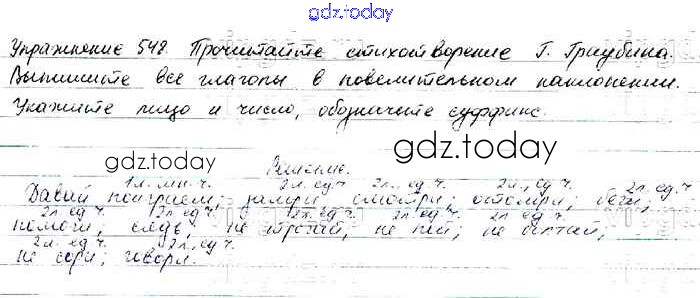 gdz.today
Упражнение 548. Прочитайте стихотворение Г. Граубина.
Выпишите все глаголы в повелительном наклонении.
Укажите лицо и число, обозначьте суффикс.
gdz.today
gdz.today
Решение.
1л. мн. ч. 2л. ед. ч. 2л. ед ч. 2л., ед ч. 2л. ед ч.
Давай поиграем; замри; смотри; отомри; беги;
2л. ед ч. 2л. ед ч. 2л. ед ч. 2л. ед ч. 2л ед ч.
помоги, следь; не трогай, не пей; не болтай;
2л. ед ч. 2л. ед ч.
не сори; говори.